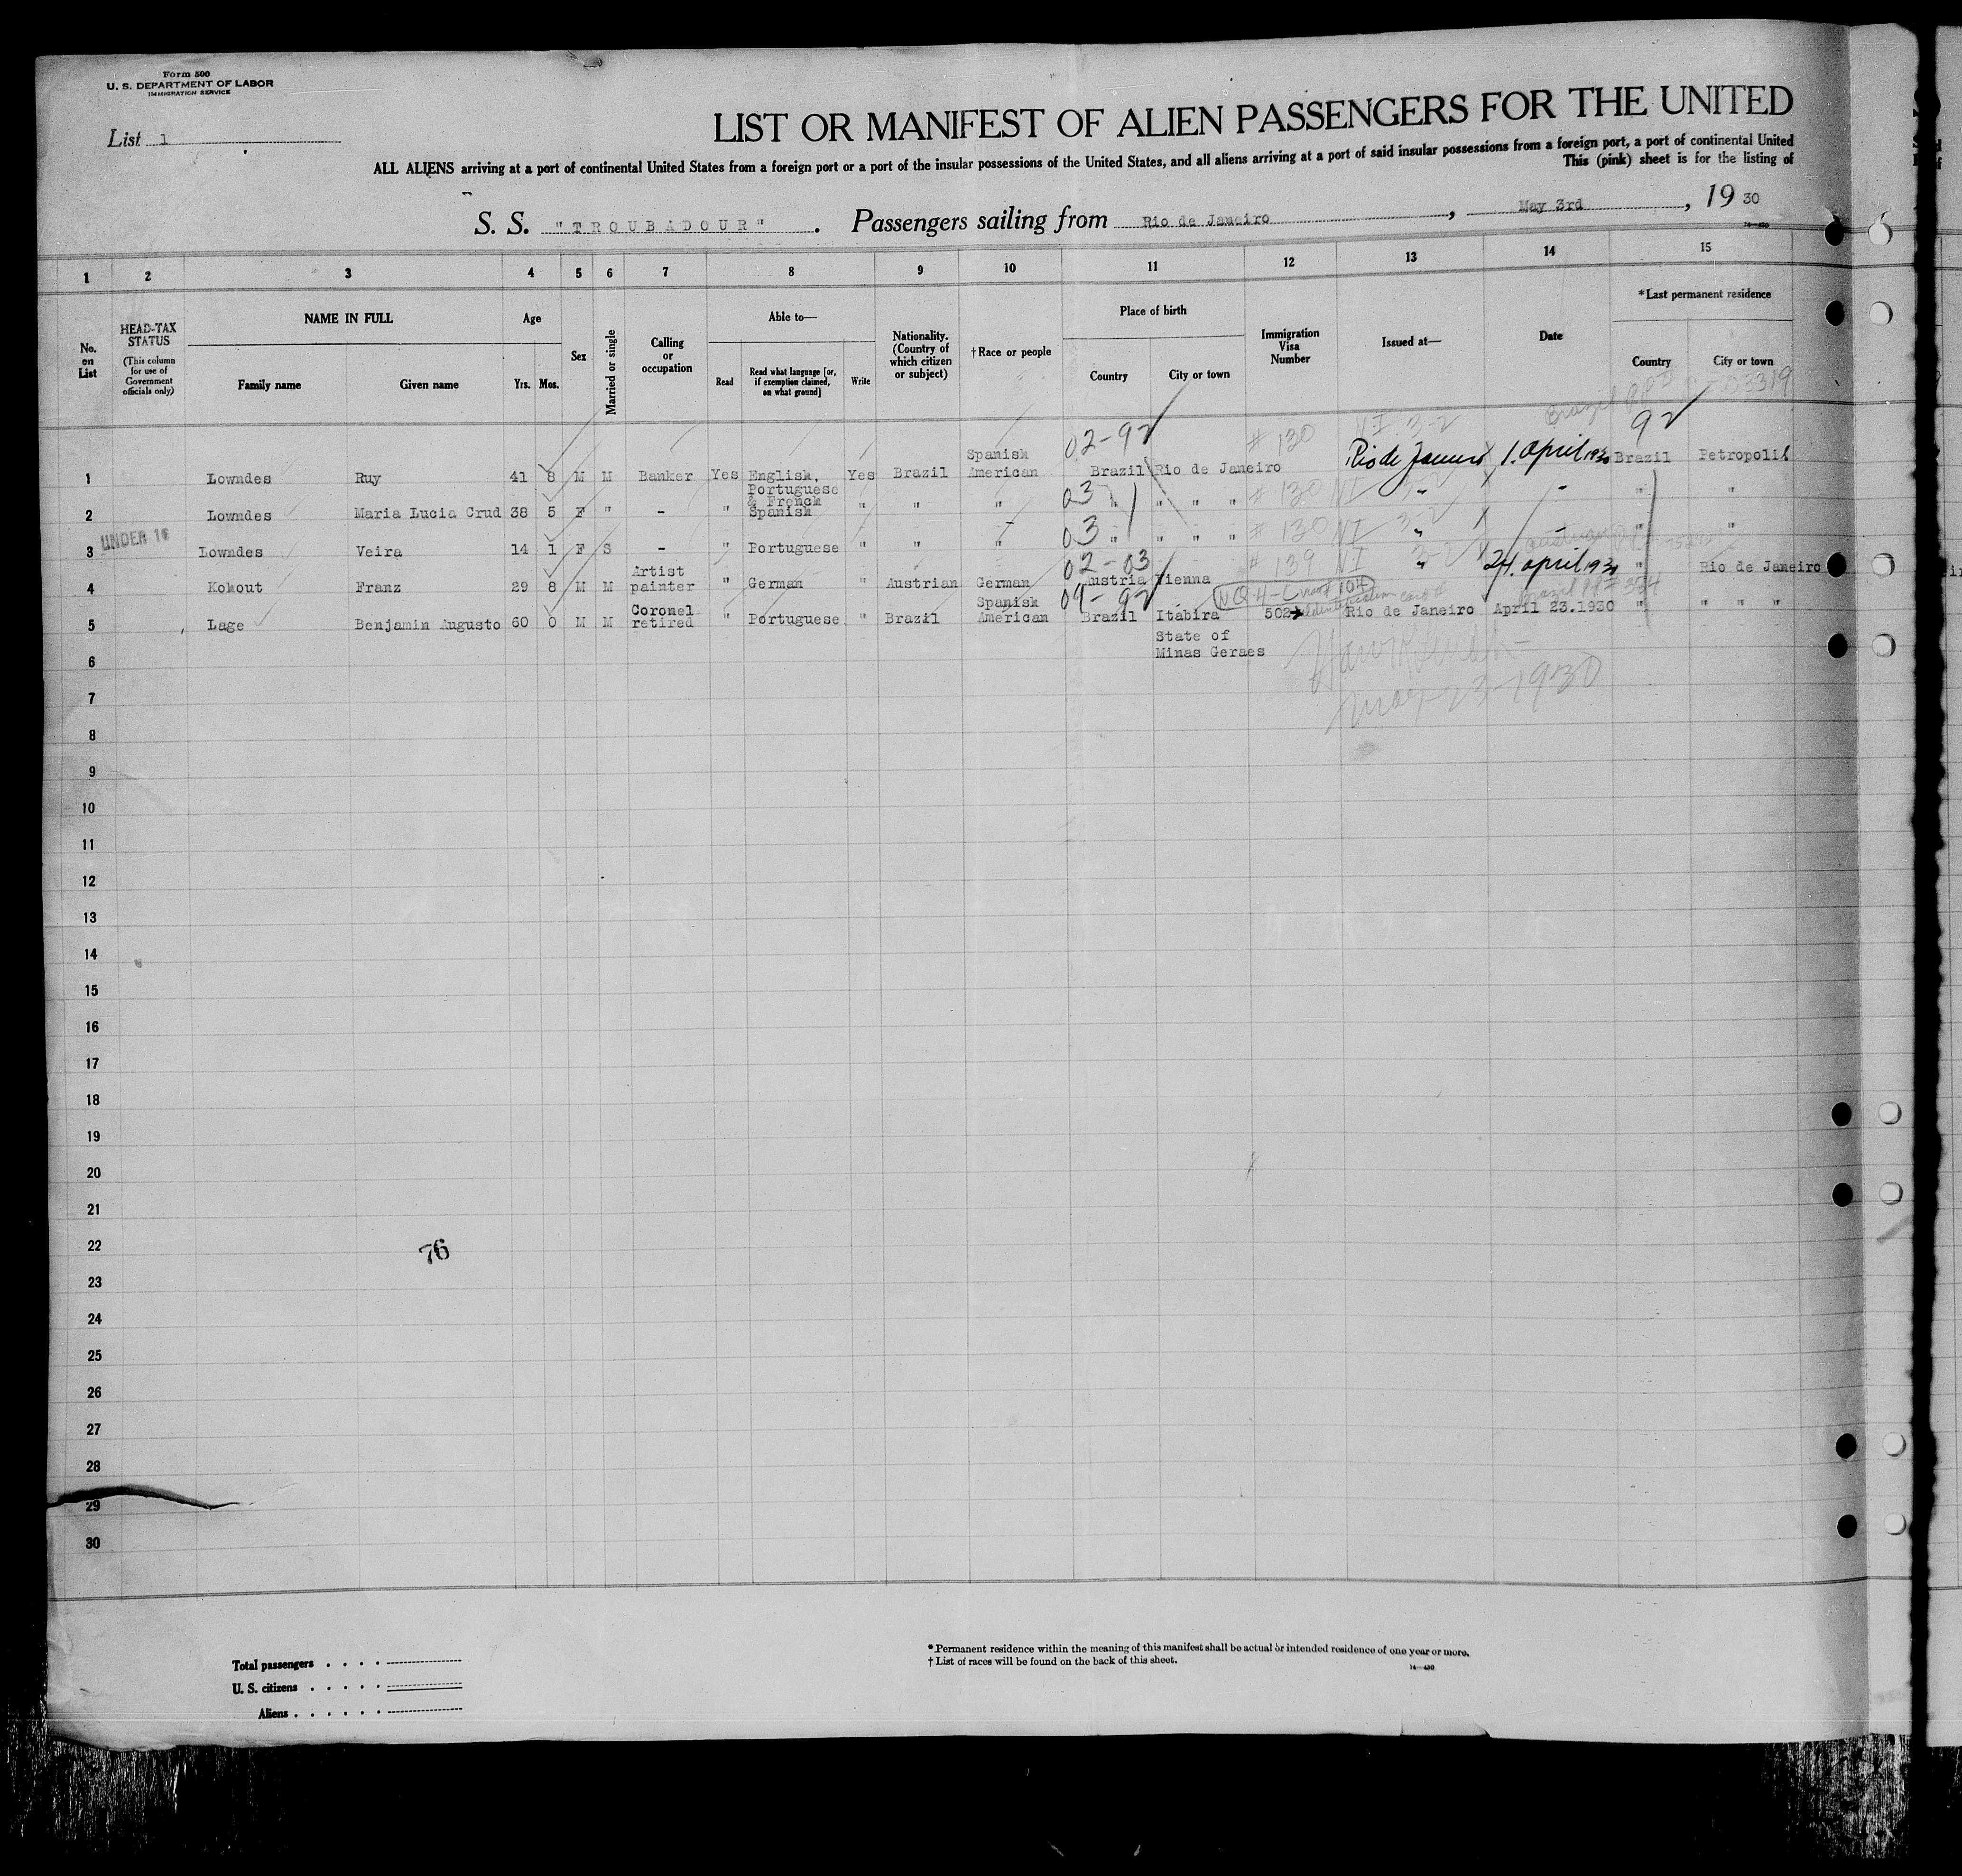 Form 500
U. S. DEPARTMENT OF LABOR
IMMIGRATION SERVICE
List 1
LIST OR MANIFEST OF ALIEN PASSENGERS FOR THE UNITED
ALL ALIENS arriving at a port of continental United States from a foreign port or a port of the insular possessions of the United States, and all aliens arriving at a port of said insular possessions from a foreign port, a port of continental United
This (pink) sheet is for the listing of
S. S. "TROUBADOUR". Passengers sailing from Rio de Janeiro, May 3rd, 1930
14—430
1 2 3 4 5 6 7 8 9 10 11 12 13 14 15
No. on List
HEAD-TAX STATUS
(This column for use of Government officials only)
NAME IN FULL
Family name Given name
Age
Yrs. Mos.
Sex
Married or single
Calling or occupation
Able to—
Read
Read what language [or, if exemption claimed, on what ground]
Write
Nationality. (Country of which citizen or subject)
†Race or people
Place of birth
Country City or town
Immigration Visa Number
Issued at—
Date
*Last permanent residence
Country City or town
02-92 #130 NI 3-2 Brazil 92
1 Lowndes Ruy 41 8 M M Banker Yes English, Portuguese & French Yes Brazil Spanish American Brazil Rio de Janeiro Rio de Janeiro 1. April 1930 Brazil Petropolis
03 #130 NI 3-2
2 Lowndes Maria Lucia Crud 38 5 F " - " Spanish " " " " " " " " " " "
UNDER 16
03 #130 NI 3-2
3 Lowndes Veira 14 1 F S - " Portuguese " " " " " " " " " "
02-03 #139 NI 3-2
4 Kohout Franz 29 8 M M Artist painter " German " Austrian German Austria Vienna " 24. April 1930 " Rio de Janeiro
09-92
5 Lage Benjamin Augusto 60 0 M M Coronel retired " Portuguese " Brazil Spanish American Brazil Itabira 502 Rio de Janeiro April 23.1930 " " " "
State of
Minas Geraes
6
May-23-1930
7
8
9
10
11
12
13
14
15
16
17
18
19
20
21
22
76
23
24
25
26
27
28
29
30
Total passengers
U. S. citizens
Aliens
*Permanent residence within the meaning of this manifest shall be actual or intended residence of one year or more.
†List of races will be found on the back of this sheet.
14—430